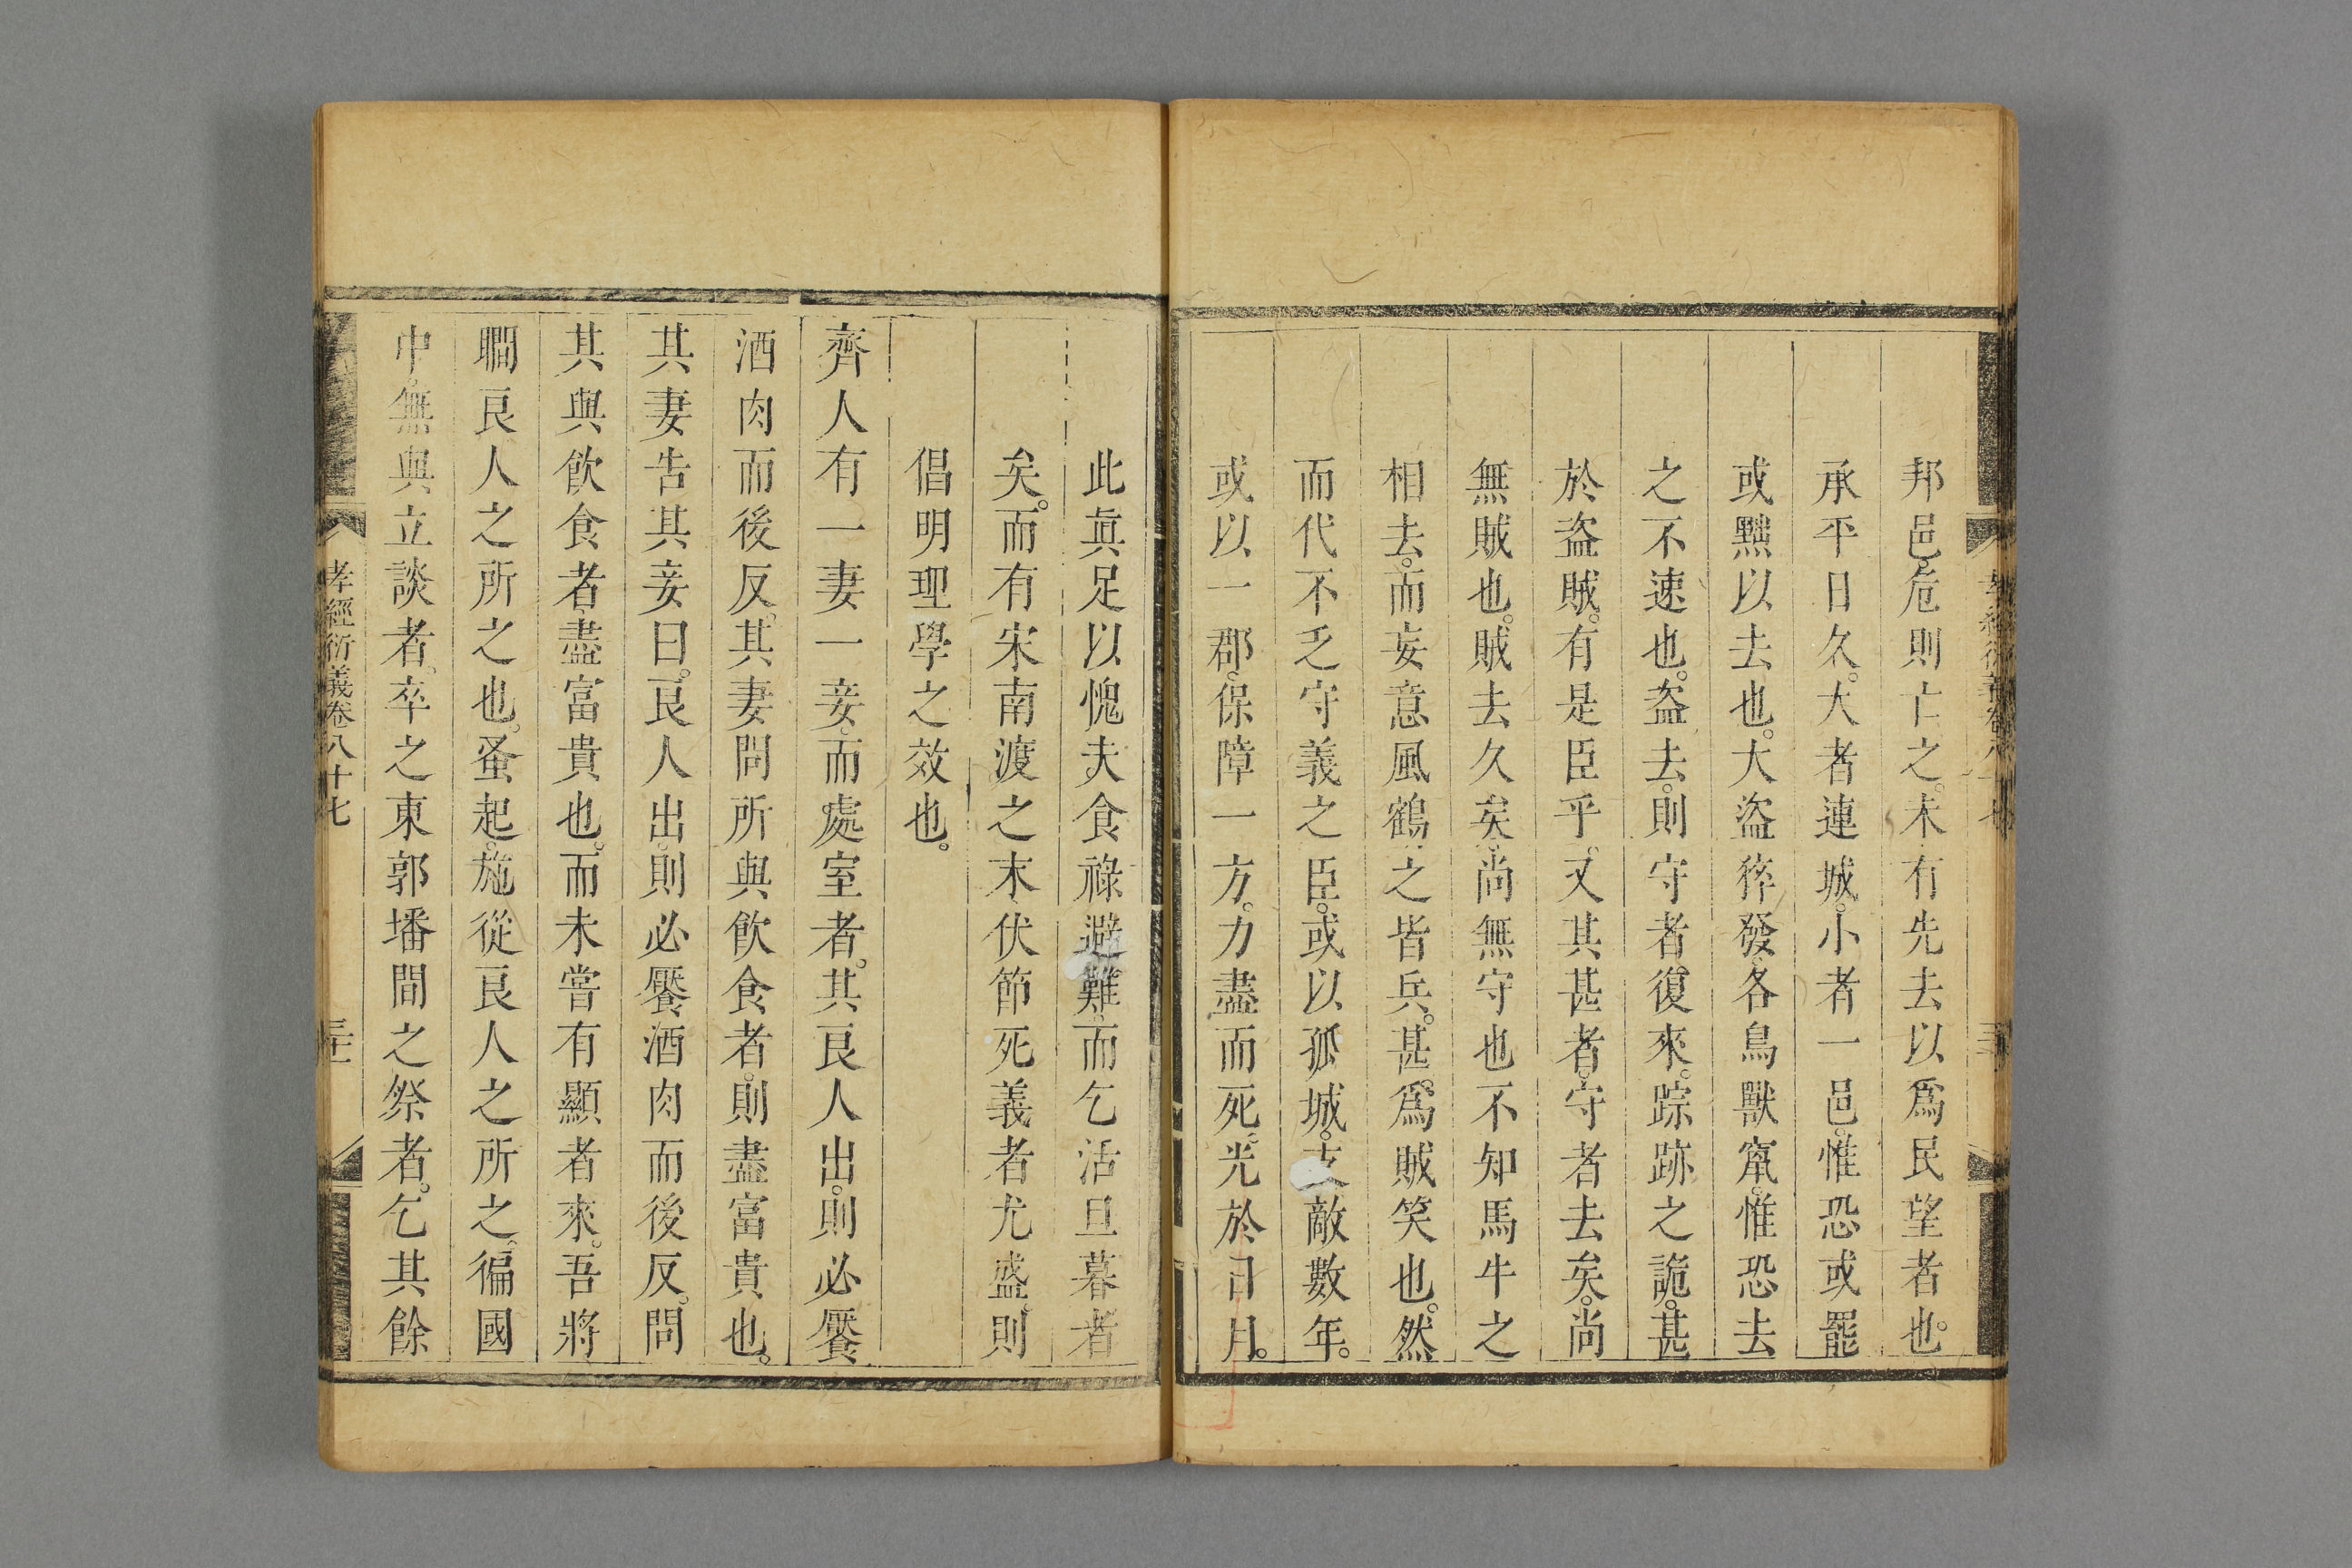 邦邑。危則亡之。未有先去以爲民望者也。
承平日久。大者連城。小者一邑。惟恐或罷
或黜以去也。大盜猝發。各鳥獸竄。惟恐去
之不速也。盜去。則守者復來。踪跡之詭。甚
於盜賊。有是臣乎。又其甚者。守者去矣。尚
無賊也。賊去久矣。尚無守也不知馬牛之
相去。而妄意風鶴之皆兵。甚。爲賊笑也。然
而代不乏守義之臣。或以孤城。支敵數年。
或以一郡。保障一方。力盡而死。光於日月。
此眞足以愧夫食祿避難。而乞活旦暮者
矣。而有宋南渡之末伏節死義者尤盛。則
倡明理學之效也。
齊人有一妻一妾。而處室者。其良人出。則必饜
酒肉而後反。其妻問所與飲食者。則盡富貴也。
其妻告其妾曰。良人出。則必饜酒肉而後反。問
其與飲食者。盡富貴也。而未嘗有顯者來。吾將
瞯良人之所之也。蚤起。施從良人之所之。徧國
中無與立談者。卒之東郭墦間之祭者。乞其餘
孝經衍義卷八十七